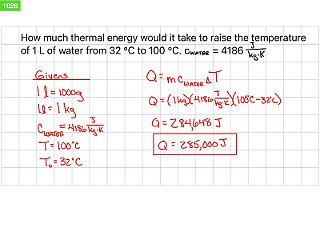 1026
How much thermal energy would it take to raise the temperature
of 1 L of water from 32 °C to 100 °C. C_WATER = 4186 J/kg·K
Givens
1 L = 1000g
1 L = 1 kg
C_WATER = 4186 J/kg·K
T = 100°C
T₀ = 32°C
Q = m C_WATER ΔT
Q = (1 kg)(4186 J/kg·K)(100°C - 32°C)
Q = 284,648 J
Q = 285,000 J